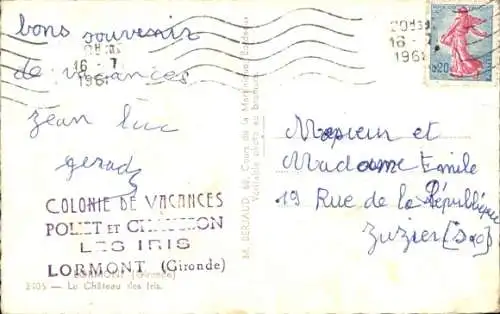 bons souvenir
de vacances
Jean luc
gerad
COLONIE DE VACANCES
POLIET ET CHAUSSON
LES IRIS
LORMONT (Gironde)
LORMONT (Gironde)
2105 - Le Château des Iris.
M. BERJAUD, 62, Cours de la Martinique, Bordeaux
Véritable photo au bromure
16 - 7
196
16 - 7
196
0,20
Monsieur et
Madame Emile
19 Rue de la République